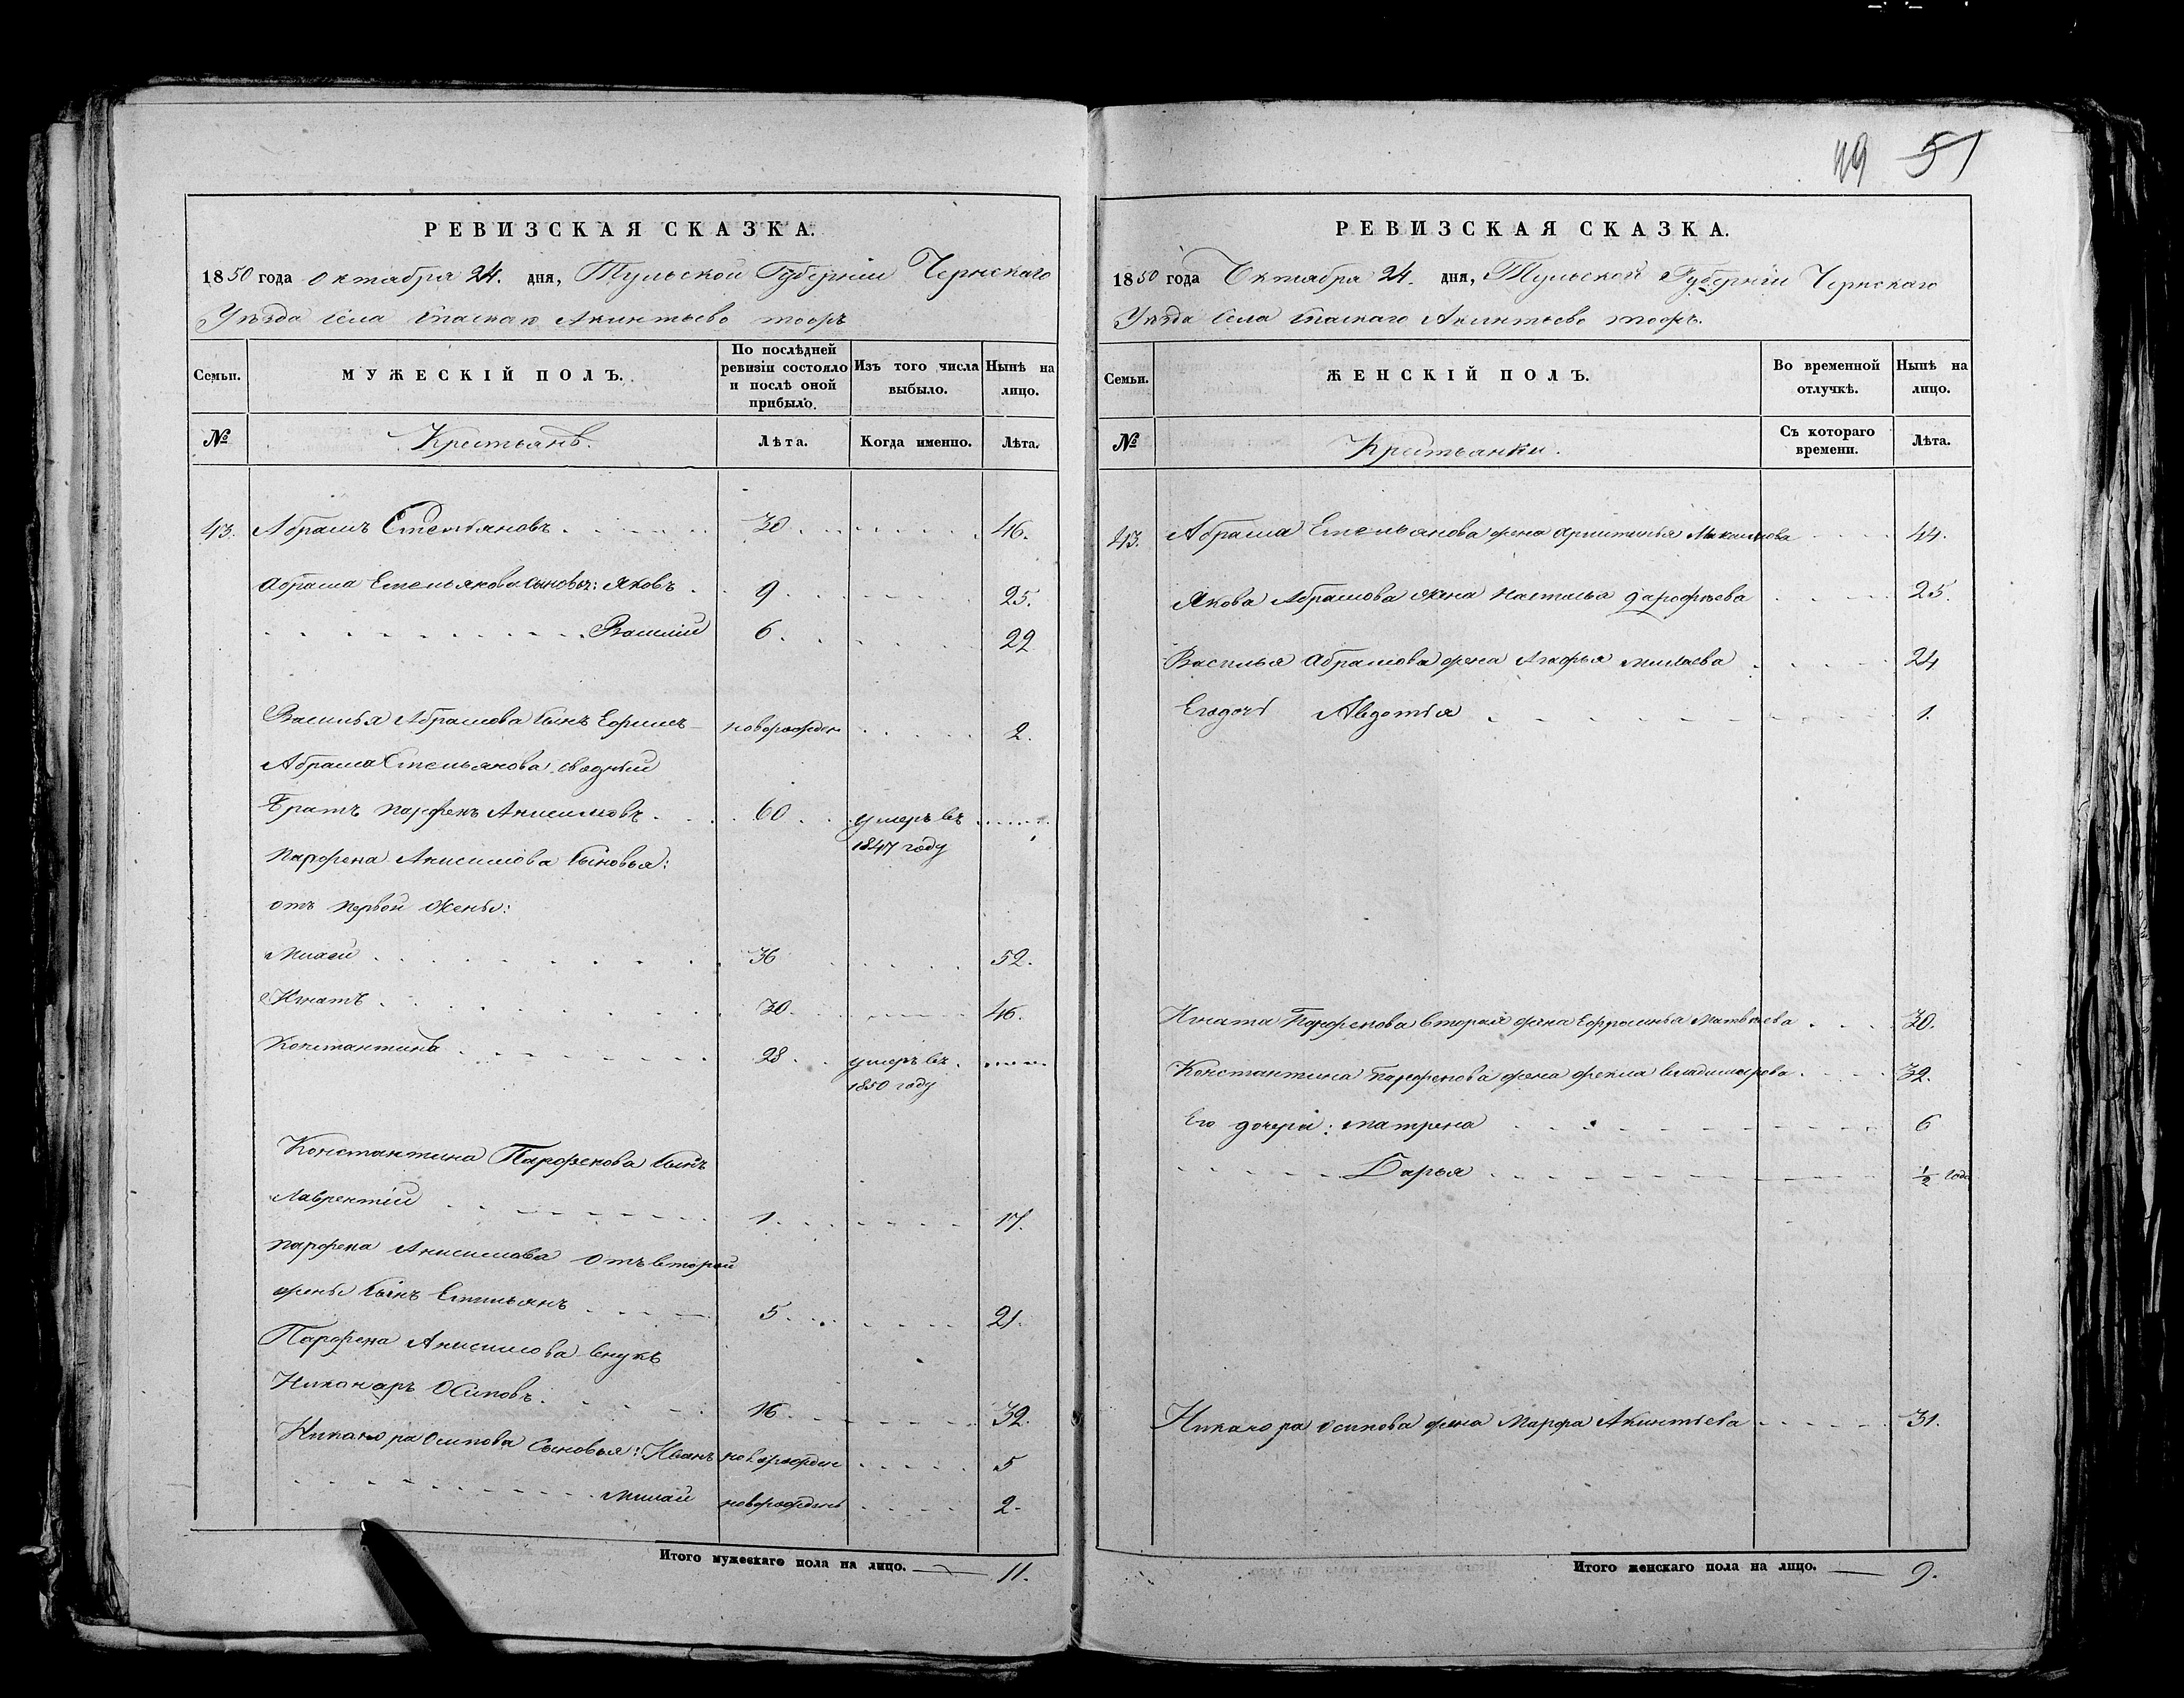 49 51
РЕВИЗСКАЯ СКАЗКА.
1850 года Октября 24. дня, Тульской Губерніи Чернскаго
Уѣзда Села Спаскаго Акинтьево тоожъ
Семьи.
МУЖЕСКІЙ ПОЛЪ.
По послѣдней ревизіи состояло и послѣ оной прибыло.
Изъ того числа выбыло.
Нынѣ на лицо.
№
Крестьянъ.
Лѣта.
Когда именно.
Лѣта.
43. Абрамъ Емельяновъ 30 46.
Абрама Емельянова сыновья: Яковъ 9 25.
Василій 6 22
Василья Абрамова сынъ Ефимъ новорожден 2.
Абрама Емельянова сводный
Братъ Парфенъ Анисимовъ 60 умеръ въ
1847 году
Парфена Анисимова сыновья:
отъ первой жены:
36 52.
Игнатъ 30 46.
Константинъ 28 умеръ въ
1850 году
Константина Парфенова сынъ
Лаврентій 1 17.
Парфена Анисимова отъ второй
жены сынъ Емельянъ 5 21.
Парфена Анисимова внукъ
Никаноръ Осиповъ 16 32.
Никанора Осипова сыновья: Иванъ новорожден 5
новорожденъ 2.
Итого мужескаго пола на лицо. 11.
РЕВИЗСКАЯ СКАЗКА.
1850 года Октября 24. дня, Тульской Губерніи Чернскаго
Уѣзда Села Спаскаго Акинтьево тоожъ.
Семьи.
ЖЕНСКІЙ ПОЛЪ.
Во временной отлучкѣ.
Нынѣ на лицо.
№
Крестьянки.
Съ котораго времени.
Лѣта.
43. Абрама Емельянова жена Максимова 44.
Якова Абрамова жена Настасья Дорофѣева 25.
Василья Абрамова жена Агафья 24
Его дочь Авдотья 1.
Игната Парфенова вторая жена Ефросинья Матвѣева 30.
Константина Парфенова жена Фекла Владимырова 32.
Его дочери: Матрена 6
Дарья ½ года
Никанора Осипова жена Марфа Акинтьева 31.
Итого женскаго пола на лицо. 9.